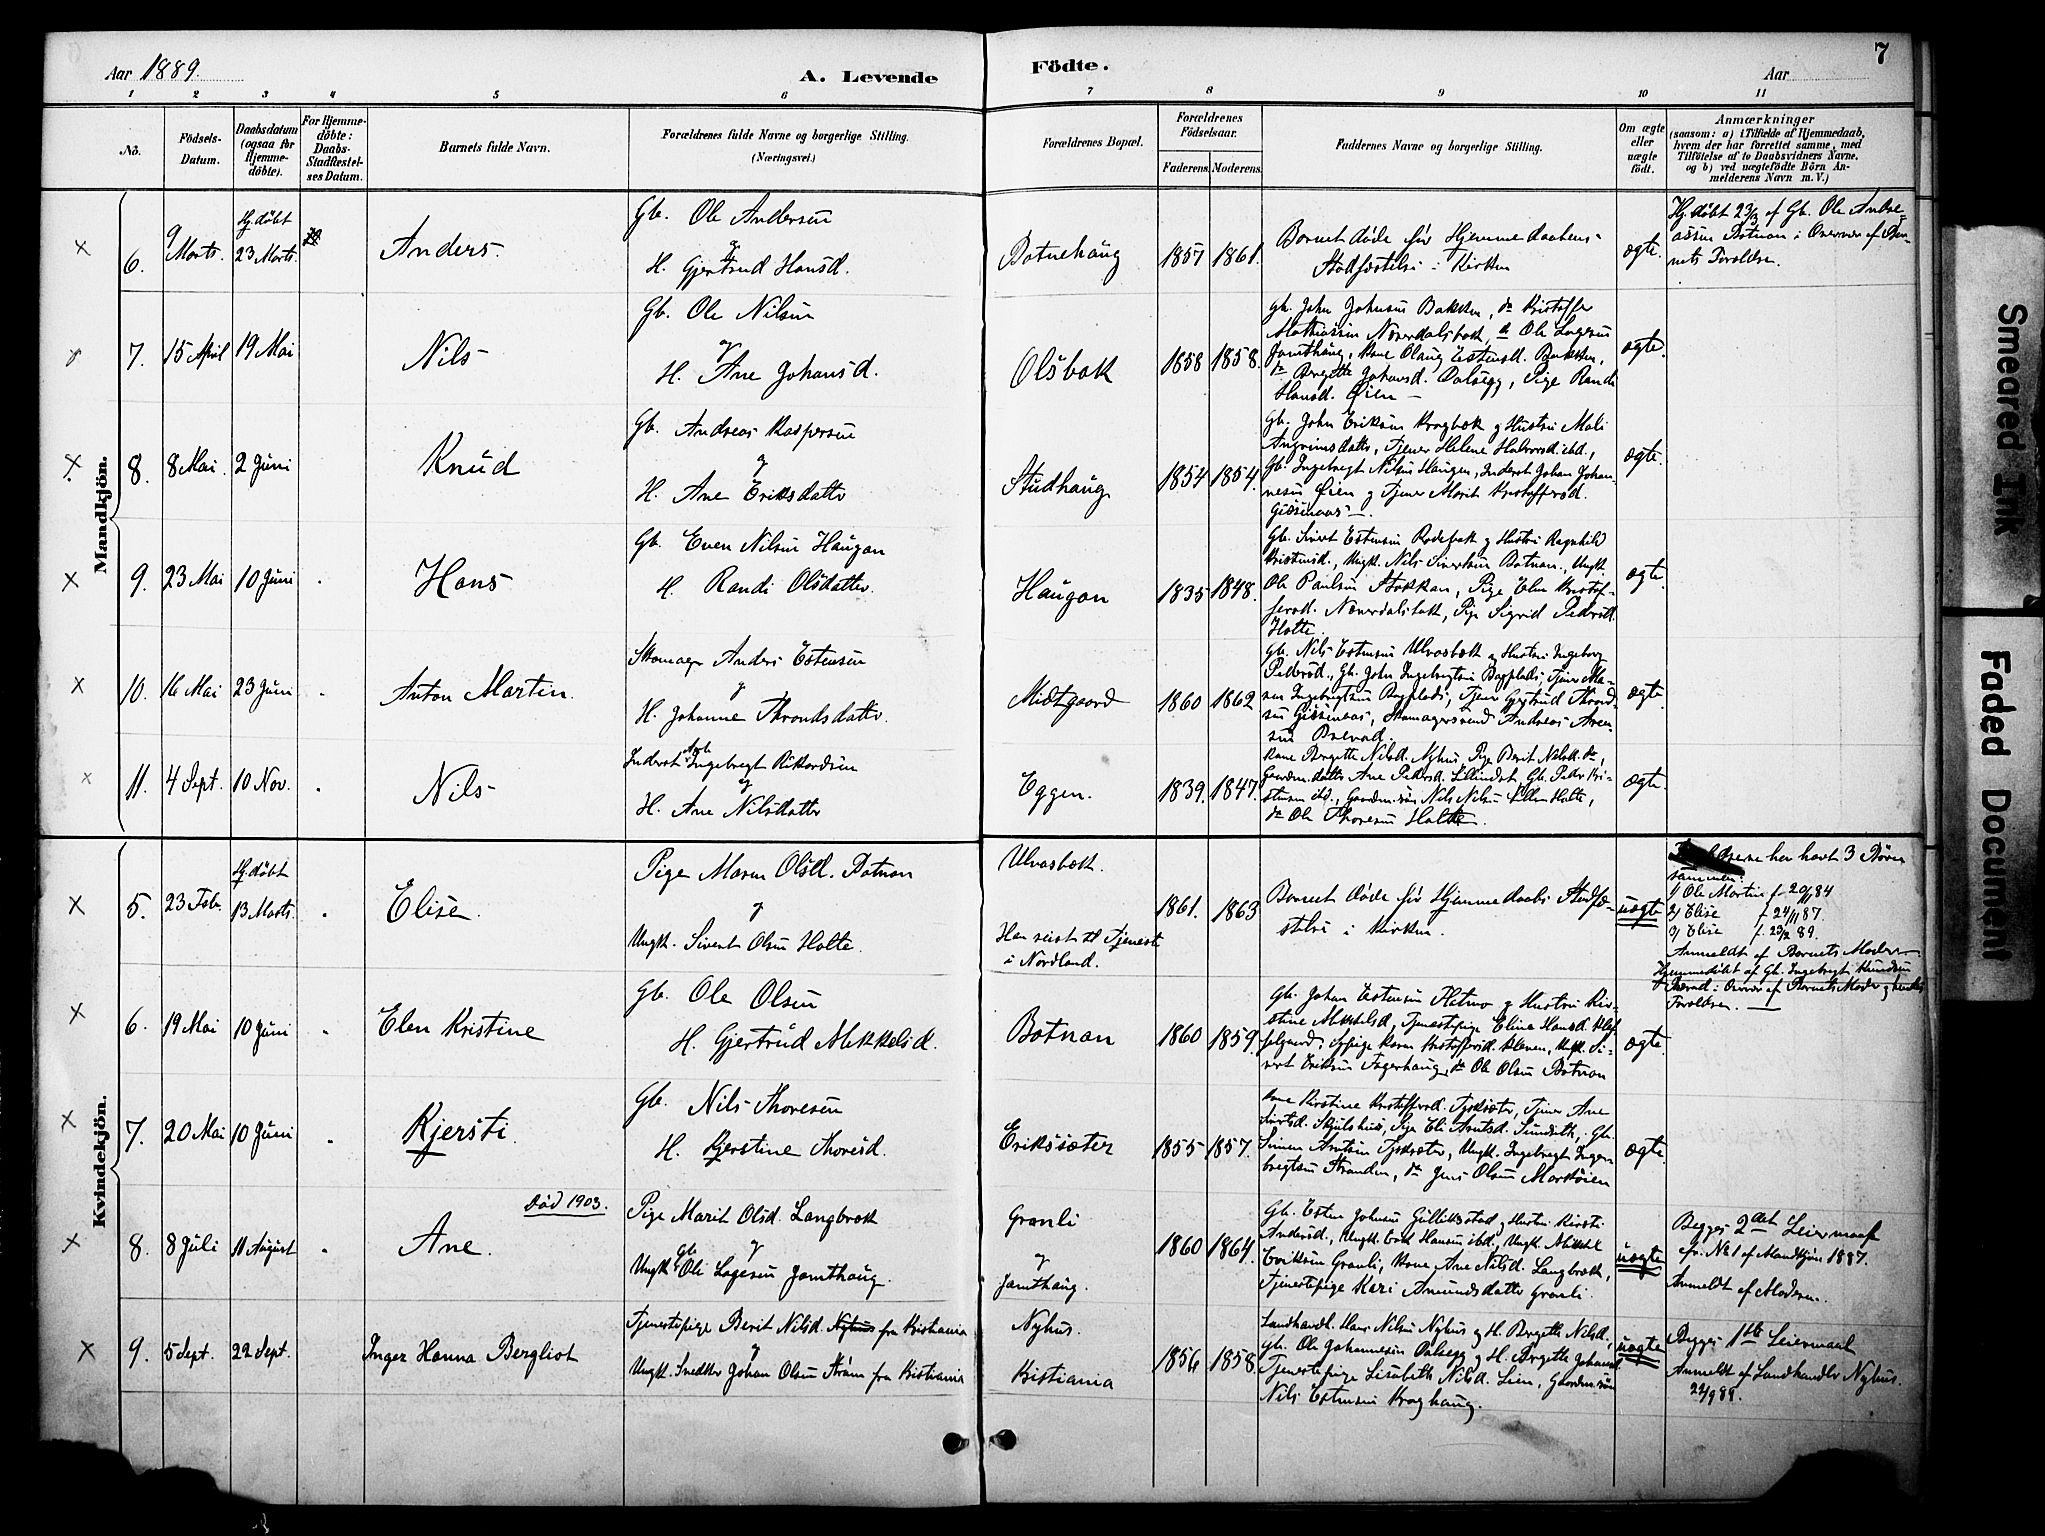 Aar 1889.
A. Levende
Födte.
Aar
7
1 2 3 4 5 6 7 8 9 10 11
No.
Födsels-
Datum.
Daabsdatum
(ogsaa for
Hjemme-
döbte).
For Hjemme-
döbte:
Daabs-
Stadfæstel-
ses Datum.
Barnets fulde Navn.
Forældrenes fulde Navne og borgerlige Stilling.
(Næringsvei.)
Forældrenes Bopæl.
Forældrenes
Födselsaar.
Faderens. Moderens.
Faddernes Navne og borgerlige Stilling.
Om ægte
eller
uægte
födt.
Anmærkninger
(saasom: a) i Tilfælde af Hjemmedaab,
hvem der har forrettet samme, med
Tilföielse af to Daabsvidners Navne,
og b) ved uægtefödte Börn An-
melderens Navn m. V.)
Mandkjön.
6.
9
Marts.
Hj. døbt
23 Marts.
Anders.
Gb. Ole Andersen
og
H. Gjertrud Hansd.
Botnehaug
1857 1861.
Barnet døde før Hjemmedaabens
Stadfæstelse i Kirken
ægte.
Hj. døbt 23/3 af Gb. Ole Andre-
assen Botnan i Overvær af Bar-
nets Forældre.
7. 15 April 19 Mai
Nils
Gb. Ole Nilsen
og
H. Ane Johansd.
Olsbak
1858 1858.
Gb. John Johnsen Bakken, do Kristoffer
Mathiassen Næverdalsbak, do Ole Lagesen
Jamthaug, Kone Olaug Estensd. Bakken,
do Bergitte Johansd. Dalsegg, Pige Randi
Hansd. Øien
ægte.
8. 8 Mai. 2 Juni
Knud
Gb. Andreas Kaspersen
og
H. Ane Eriksdatter
Studhaug
1854 1854.
Gb. John Eriksen Kragbæk og Hustru Mali
Angrimsdatter, Tjener Helene Halvorsd. ibd.,
Gb. Ingebregt Nilsen Haugen, Inderst Johan Johan-
nesen Øien og Tjener Marit Kristoffersd.
ægte.
9. 23 Mai 10 Juni
Hans
Gb. Even Nilsen Haugan
H. Randi Olsdatter.
Haugan
1835 1848.
Gb. Sivert Estensen Rødebak og Hustru Ragnhild
Kristensd., Ungk. Nils Sivertsen Botnan., Ungk.
Ole Paulsen Stokkan, Pige Elen Kristof-
fersd. Næverdalsbak, Pige Sigrid Pedersd.
Holte.
ægte.
10. 16 Mai 23 Juni
Anton Martin.
Skomager Anders Estensen
og
H. Johanne Throndsdatter.
Midtgaard
1860 1862
Gb. Nils Estensen Ulvasbæk og Hustru Ingeborg
Pedersd., Gb. John Ingebregtsen Bagplads, Tjener
Ingebregtsen Bagplads, Tjener Gjertrud
Skomagersvend Andreas
ægte.
11. 4 Sept. 10 Nov.
Nils
Inderst Arb. Ingebregt Rikardsen
og
H. Ane Nilsdatter
Eggen.
1839. 1847.
Kone Bergitte Nilsd. Nyhus, Pige Berit Nilsd. do,
Gaardm.datter Ane Pedersd. Gb. Peder Kri-
stensen ibd., Gaardm.søn Nils Nilsen Lillen Holte,
do Ole Thoresen Holte.
ægte.
Kvindekjön.
5. 23 Feb.
Hj. døbt
13 Marts.
Elise.
Pige Maren Olsd. Botnan
og
Ungk. Sivert Olsen Holte.
Ulvasbæk.
Han reist til Tjeneste
i Nordland.
1861. 1863
Barnet døde før Hjemmedaabs Stadfæ-
stelse i Kirken.
uægte
har havt 3 Børn
sammen:
1/ Ole Martin f. 20/11 84
2/ Elise f. 24/11 87.
3/ Elise f. 23/2 89.
Anmeldt af Barnets Moder
Hjemmedøbt af Gb. Ingebregt Knudsen
i Overvær af Barnets Moder og hendes
Forældre.
6. 19 Mai 10 Juni
Elen Kristine
Gb. Ole Olsen
H. Gjertrud Mikkelsd.
Botnan
1860 1859.
Gb. Johan Estensen Fletmo og Hustru Kir-
stine Mikkelsd., Tjenestepige Eline Hansd.
Pige Karen Kristoffersd. Kleven, Ungk. Si-
vert Eriksen Fagerhaug, do Ole Olsen Botnan
ægte.
7. 20 Mai 10 Juni
Kjersti.
Gb. Nils Thoresen
H. Kjerstine Thoresd.
Erikssæter
1855 1857.
Kone Kirstine Kristoffersd. Tyskæter, Tjener Ane
Sivertsd. Skjulshus, Pige Eli Arntsd. Sundseth, Gb.
Simen Arntsen Tyskæter, Ungk. Ingebregt Inge-
bregtsen Stranden, do Jens Olsen Markøien
ægte.
Død 1903.
8. 8 Juli 11 August
Ane.
Pige Marit Olsd. Langbræk
og
Ungk. Gb. Ole Lagesen Jamthaug.
Granli
og
Jamthaug.
1860 1864.
Gb. Esten Johnsen Gullikstad og Hustru Kirsti
Andersd., Ungk. Hansen ibd., Ungk. Mikkel
Eriksen Granli, Kone Ane Nilsd. Langbræk,
Tjenestepige Kari Amundsdatter Granli.
uægte
Begges 2det Leiermaal
cfr. No 1 af Mandkjøn 1887.
Anmeldt af Moderen.
9. 5 Sept. 22 Sept.
Inger Hanna Bergliot
Tjenestepige Berit Nilsd. Nyhus fra Kristiania
og
Ungk. Snedker Johan Olsen Strøm fra Kristiania
Nyhus.
Kristiania
1856 1858.
Landhandl. Hans Nilsen Nyhus og H. Bergitte Nilsd.,
Gb. Ole Johannesen Dalsegg og H. Bergitte Johansd.
Tjenestepige Lisabeth Nilsd. Lien, Gaardm.søn
Nils Estensen Kraghaug.
uægte
Begges 1ste Leiermaal
Anmeldt af Landhandler Nyhus.
22/9 89.
Smeared Ink
Faded Document